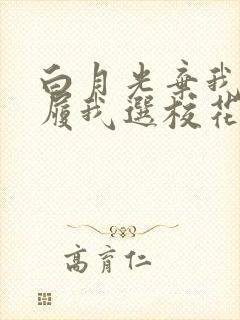 白月光棄我
履我選校花
高育仁